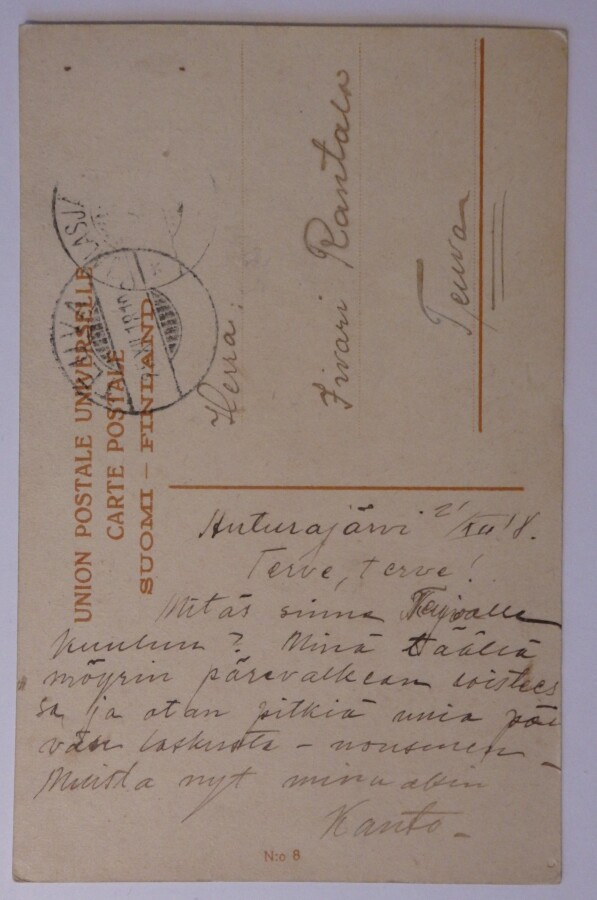 UNION POSTALE UNIVERSELLE
CARTE POSTALE
SUOMI – FINLAND
Herra:
Iivari Rantala
Teuva
Anturajärvi 21/XII 18.
Terve, terve!
Mitäs sinne Teuvalle
kuuluu? Minä täällä
möyrin pärevalkean loistees
sa ja otan pitkiä unia päi
vän laskusta – nousuun –
Muista nyt minuakin
Kanto –
N:o 8